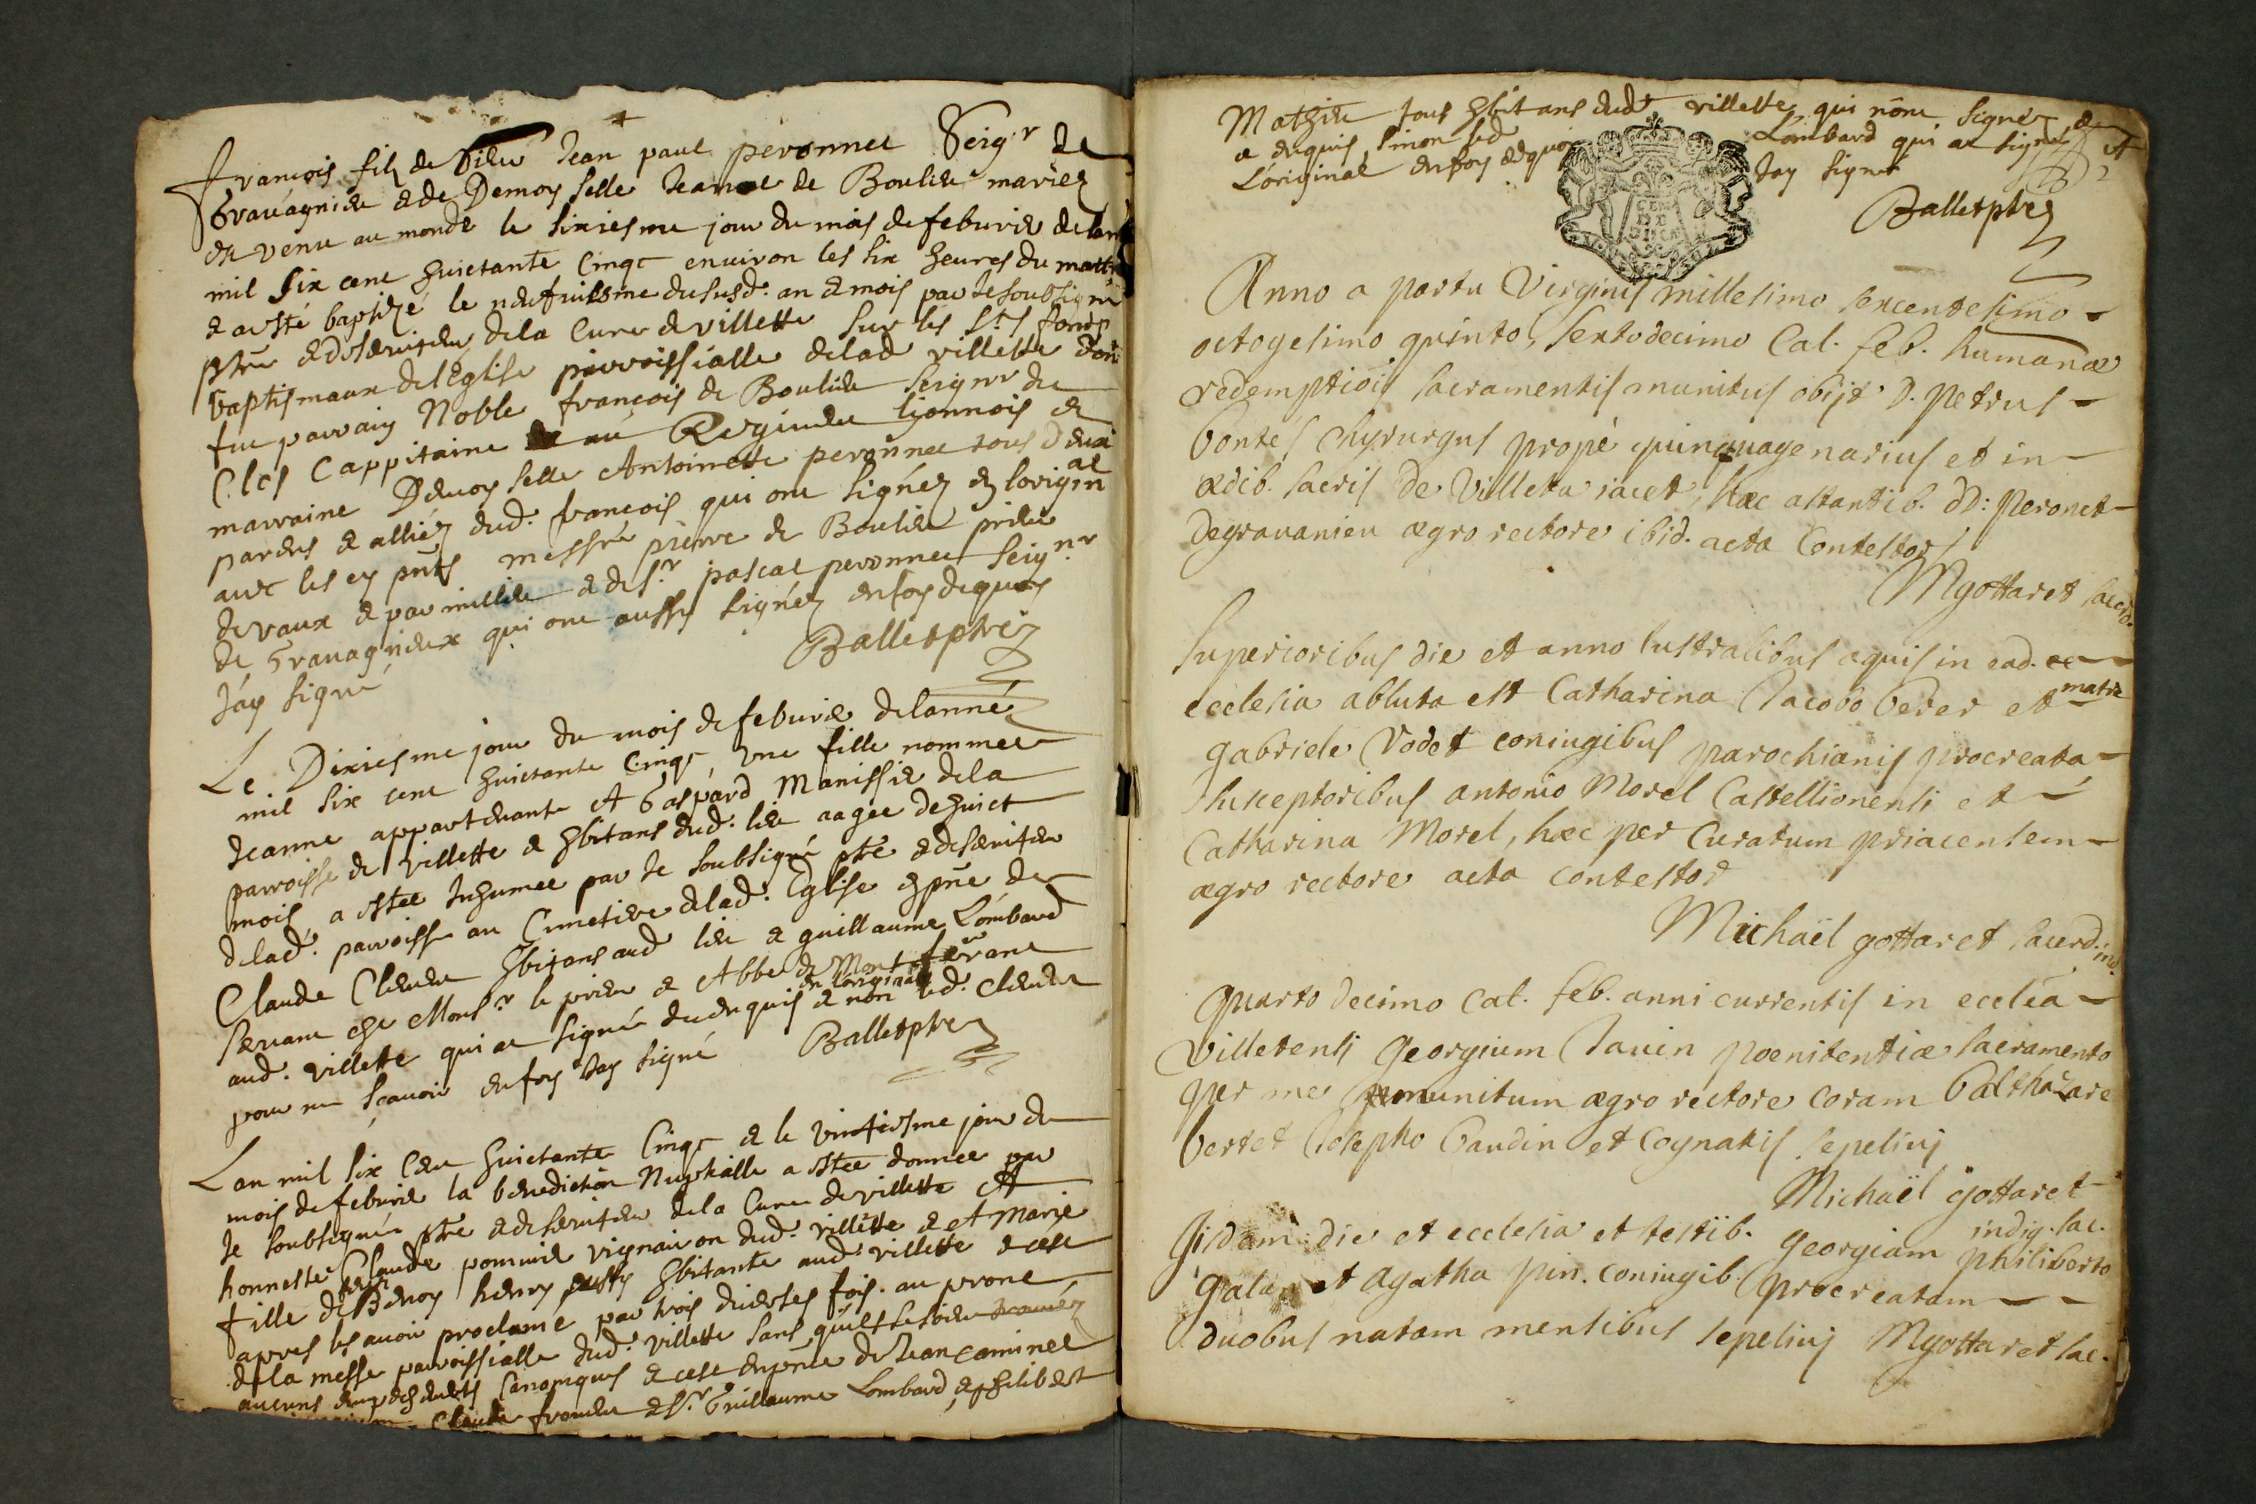 François filz de Sieur Jean paul peronnet Seigr de
Gravagnieu & de Demoyselle Jeanne de Boulieu mariez
est venu au monde le sixiesme jour du mois de feburier de lan
mil six cent huictante cinqc environ les six heures du matin
& a esté baptizé le neufuiesme du susd. an & mois par Je soubsigné
ptre & deseruiteur dela Cure de villette sur les Sts fonds
baptismaux de lEglise parroissialle delad villette dont
fut parrain Noble françois de Boulieu Seignr du
Clos Cappitaine au Regiment Lionnois &
marraine Demoyselle Antoinette peronnet tous deux
parens & alliez dud. francois qui ont signéz en lorigal
avec les cy pnts messre pierre de Boulieu prieur
de vaux & parmillieu & de Sr pascal peronnet Seignr
de Gravagnieux qui ont aussy signéz en foy dequoy
Jay signé Ballet ptre
Le Dixiesme jour du mois de feburier delanné
mil six cent huictante Cinqc, une fille nommee
Jeanne appartenante A Gaspard Manissier dela
parroisse de Villette & hbitans dud. lieu aagée de huict
mois a estee Inhumee par Je soubsigné ptre & deseruiteur
delad. parroisse au Cimetiere delad. Eglise & pnce de
Claude Clement hbitans aud lieu & guillaume Lombard
servant che Monsr le prieur & Abbe de Montferrant
aud. villette qui a signé en loriginal de enquis & non led. Clement
pour ne scavoir en foy Jay signé Ballet ptre
Lan mil six Cent huictante Cinqc & le vintiesme jour du
mois de feburier la benediction Nuptialle a estee donnee par
Je soubsigné ptre & deseruiteur dela Cure de villette A
honneste Claude pommier vigniairon dud. villette & et Marie
fille de Benoy henry hbitante aud. villette & ce
apres les avoir proclamé par trois diverses fois au prone
dela messe parroissialle dud. villette sans quil se soit trouvéz
aucuns empeschements Canoniques & ce en pnce de Jean caminet
Claude froment & Sr Guillaume Lombard, & philibert
Mathieu tous hbitans dud villette qui nont signé de
ce enquis sinon led Lombard qui a signé A
Loriginal en foy dequoy Jay signé
Ballet ptre
Anno a partu Virginis millesimo sexcentesimo
octogesimo quinto, sextodecimo Cal. feb. humanæ
redemptiois sacramentis munitus obijt D. Petrus
bontés Chyrurgus propè quinquagenarius et in
ædib. sacris de Villeta iacet, hæc astantib. DD: Peronet
degravanieu ægro rectore ibid. acta Contestor
Mgottaret sacerd.
Superioribus die et anno lustralibus aquis in ead.
ecclesia abluta est Catharina Jacobo berer et matre
gabriele Vodet coniugibus parochianis procreata
susceptoribus antonio Morel Castellionensi et
Catharina Morel, hæc per Curatum priacensem
ægro rectore acta contestor
Michaël gottaret sacerd. ind.
Quarto decimo cal. feb. anni currentis in ecclia
Villetensi Georgium Jauin poenitentiæ sacramento
per me munitum ægro rectore coram balthazare
bertet Josepho baudin et Cognatis sepelivi
Michaël gottaret
indig. sac.
Jisdem die et ecclesia et testib. georgiam philiberto
galay et Agatha pin. coniugib. procreatam
duobus natam mensibus sepelivi Mgottaret sac.